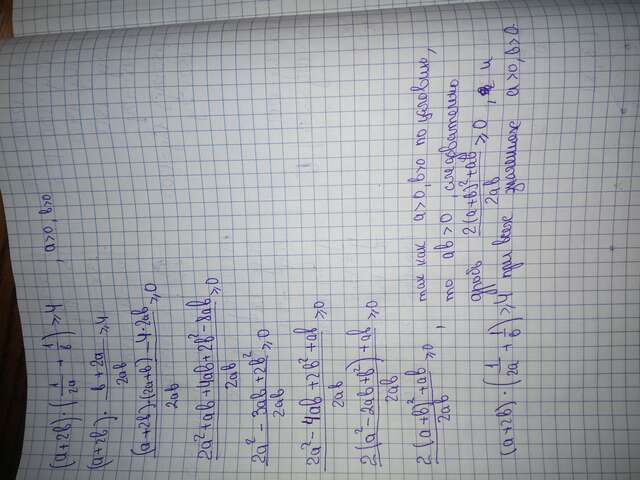 (a+2b)·(1/2a + 1/b) ≥ 4 , a>0, b>0
(a+2b)· b+2a/2ab ≥ 4
(a+2b)·(2a+b) - 4·2ab/2ab ≥ 0
2a²+ab+4ab+2b²-8ab/2ab ≥ 0
2a²-3ab+2b²/2ab ≥ 0
2a²-4ab+2b²+ab/2ab ≥ 0
2(a²-2ab+b²)+ab/2ab ≥ 0
2(a+b)²+ab/2ab ≥ 0 ,
так как a>0, b>0 по условию,
то ab>0, следовательно
дробь 2(a+b)²+ab/2ab ≥ 0, и
(a+2b)·(1/2a + 1/b) ≥ 4 при всех значениях a>0, b>0.